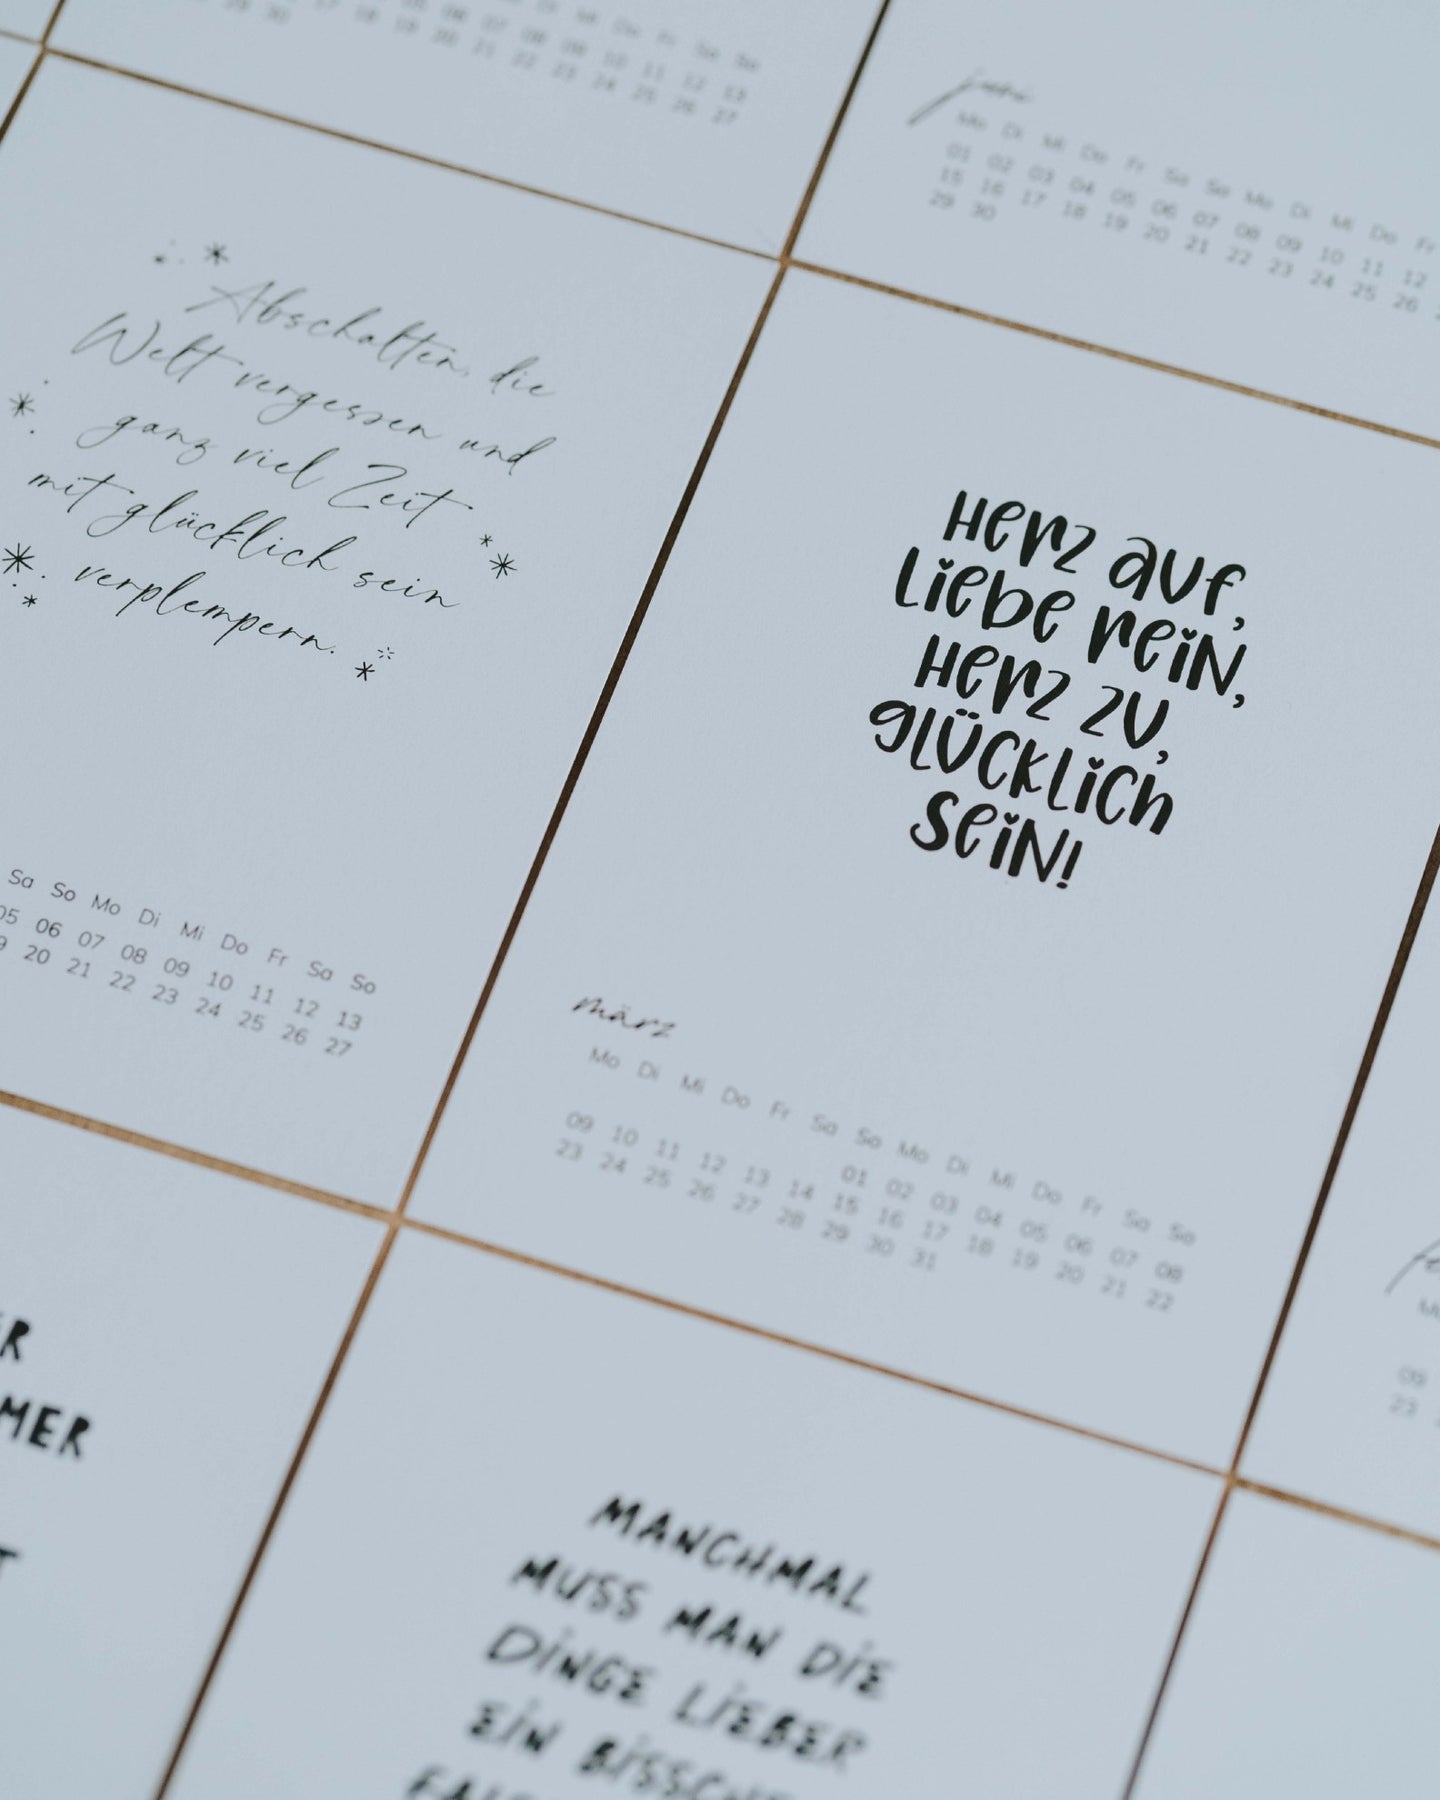 Mi Do Fr Sa So
05 06 07 08 09 10 11 12 13
17 18 19 20 21 22 23 24 25 26 27
29 30
juni
Mo Di Mi Do Fr Sa So Mo Di Mi Do Fr
01 02 03 04 05 06 07 08 09 10 11 12
15 16 17 18 19 20 21 22 23 24 25 26
29 30
Abschalten, die
Welt vergessen und
ganz viel Zeit
mit glücklich sein
verplempern.
Sa So Mo Di Mi Do Fr Sa So
05 06 07 08 09 10 11 12 13
20 21 22 23 24 25 26 27
Herz auf,
Liebe rein,
Herz zu,
glücklich
sein!
märz
Mo Di Mi Do Fr Sa So Mo Di Mi Do Fr Sa So
01 02 03 04 05 06 07 08
09 10 11 12 13 14 15 16 17 18 19 20 21 22
23 24 25 26 27 28 29 30 31
09
23
MANCHMAL
MUSS MAN DIE
DINGE LIEBER
EIN